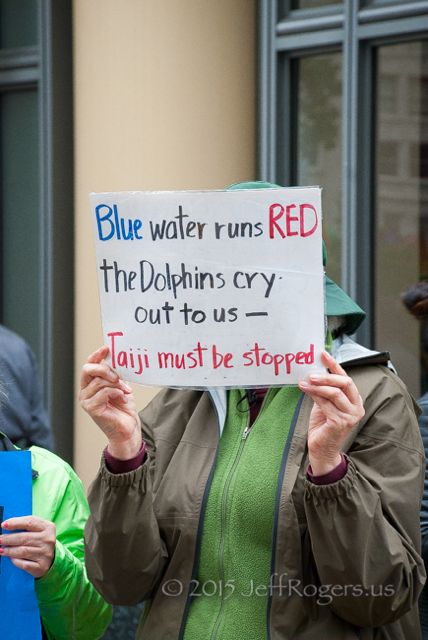 Blue water runs RED
the Dolphins cry
out to us —
Taiji must be stopped
© 2015 JeffRogers.us